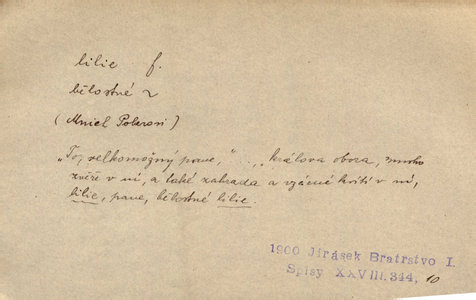 lilie f.
bělostné ~
(Mniel Polaron)
„To, velkomožný pane,“ .., „králova obora, mnoho
zvěře v ní, a také zahrada a vzácné kvítí v ní,
lilie, pane, bělostné lilie.
1900 Jirásek Bratrstvo I.
Spisy XXVIII. 344, 10